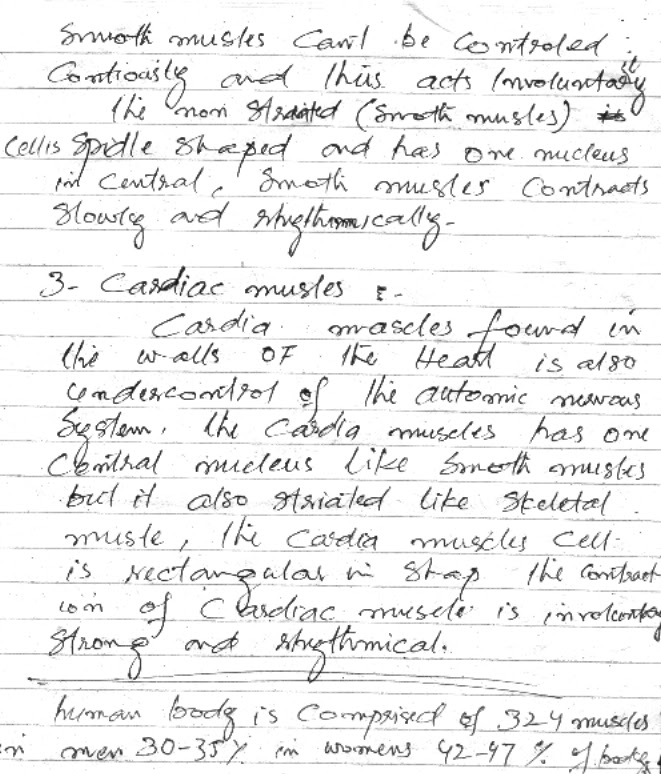 Smooth musles Can't be Controled
Contiously and thus it acts Involuntary
the non Straited (Smooth musles)
Cellis Spidle Shaped and has one nucleus
in Central, Smoth musles Contracts
Slowly and rhythmically-
3- Cardiac musles :-
Cardia mascles found in
the walls OF the Heart is also
undercontrol of the automic nervous
System. the Cardia muscles has one
Central nucleus like Smooth musles
but it also striated like Skeletal
musle, the Cardia muscles Cell
is rectangular in Shap the Contract
ion of Cardiac muscle is involuntary
Strong and rhythmical.
human body is Comprised of 324 muscles
in men 30-35% in womens 42-47 % of body